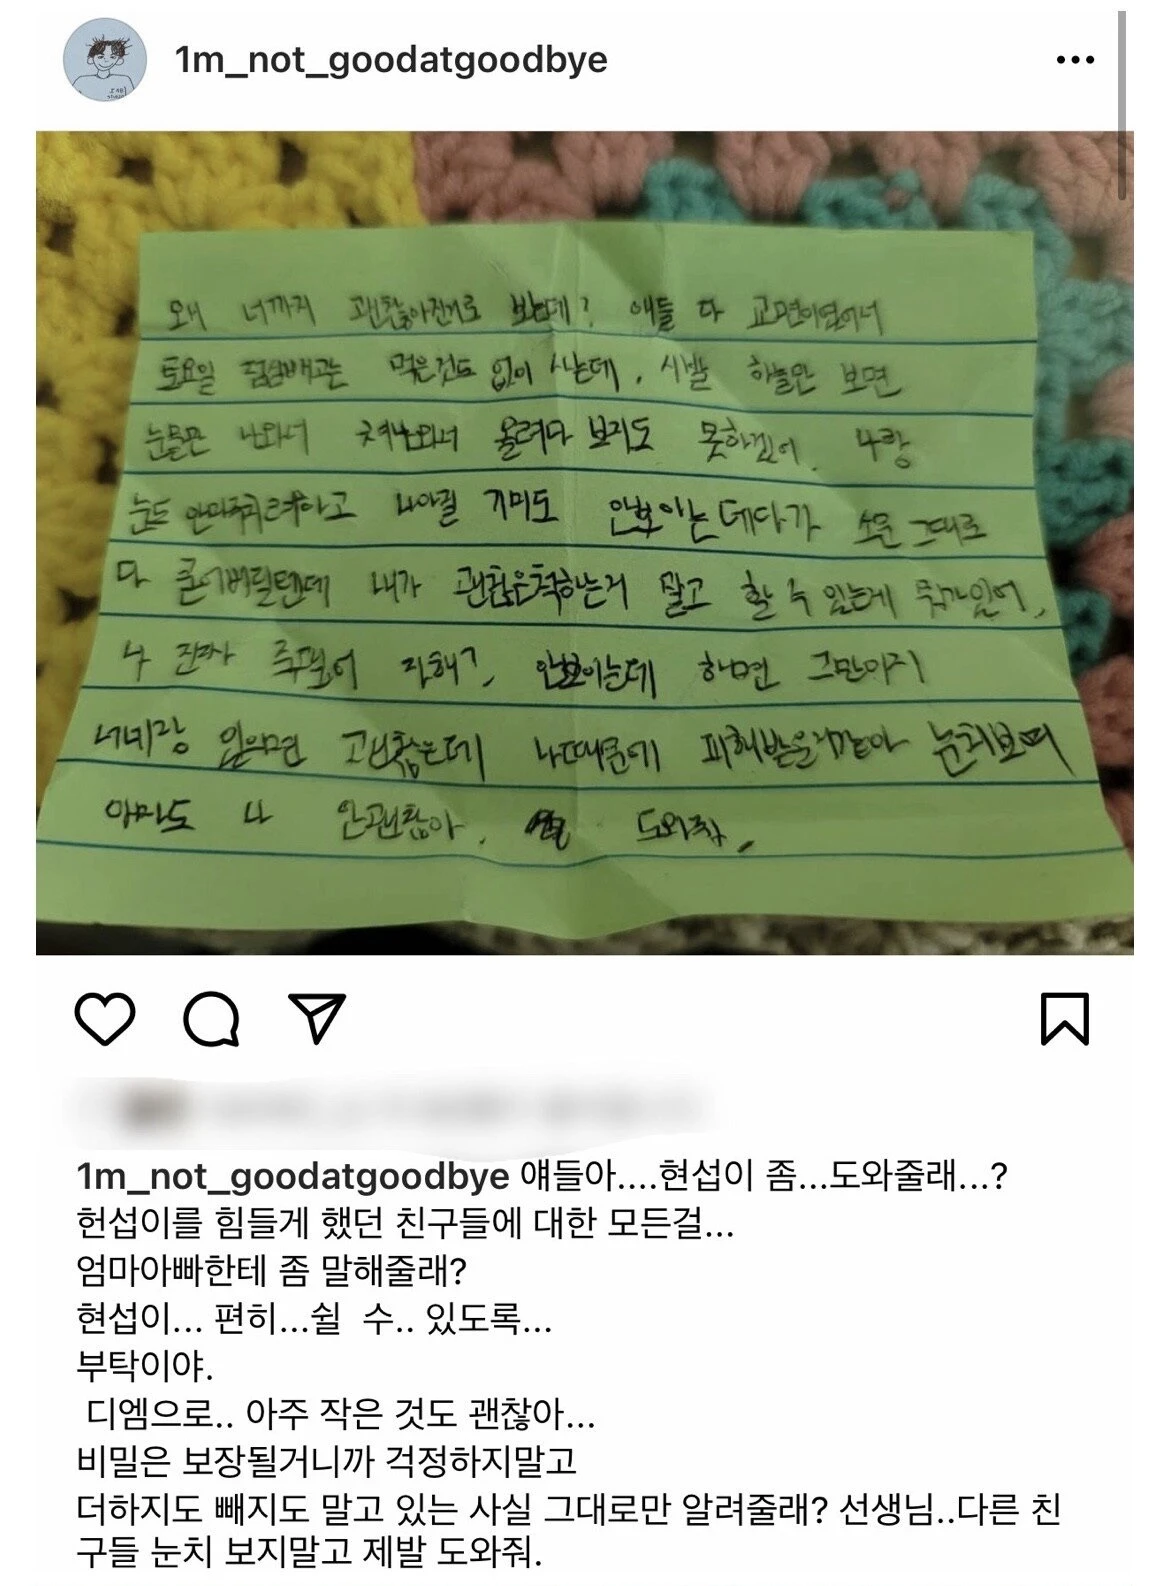 1m_not_goodatgoodbye
왜 너까지 괜찮아진거로 보는데? 얘들 다 교면이였어서
토요일 점심빼고는 먹은것도 없이 사는데, 시발 하늘만 보면
눈물만 나와서 쳐나와서 올려다 보지도 못하겠어. 나랑
눈도 안마주치려하고 나아질 기미도 안보이는데다가 소문 그대로
다 믿어버릴텐데 내가 괜찮은척하는거 말고 할 수 있는게 뭐가있어,
나 진짜 죽고싶어 안보이는데 하면 그만이지
너네랑 있으면 괜찮은데 나때문에 피해받은거같아 눈치보여
아마도 나 안괜찮아. 도와줘,
1m_not_goodatgoodbye 얘들아....현섭이 좀...도와줄래...?
헌섭이를 힘들게 했던 친구들에 대한 모든걸...
엄마아빠한테 좀 말해줄래?
현섭이... 편히...쉴 수.. 있도록...
부탁이야.
디엠으로.. 아주 작은 것도 괜찮아...
비밀은 보장될거니까 걱정하지말고
더하지도 빼지도 말고 있는 사실 그대로만 알려줄래? 선생님..다른 친
구들 눈치 보지말고 제발 도와줘.